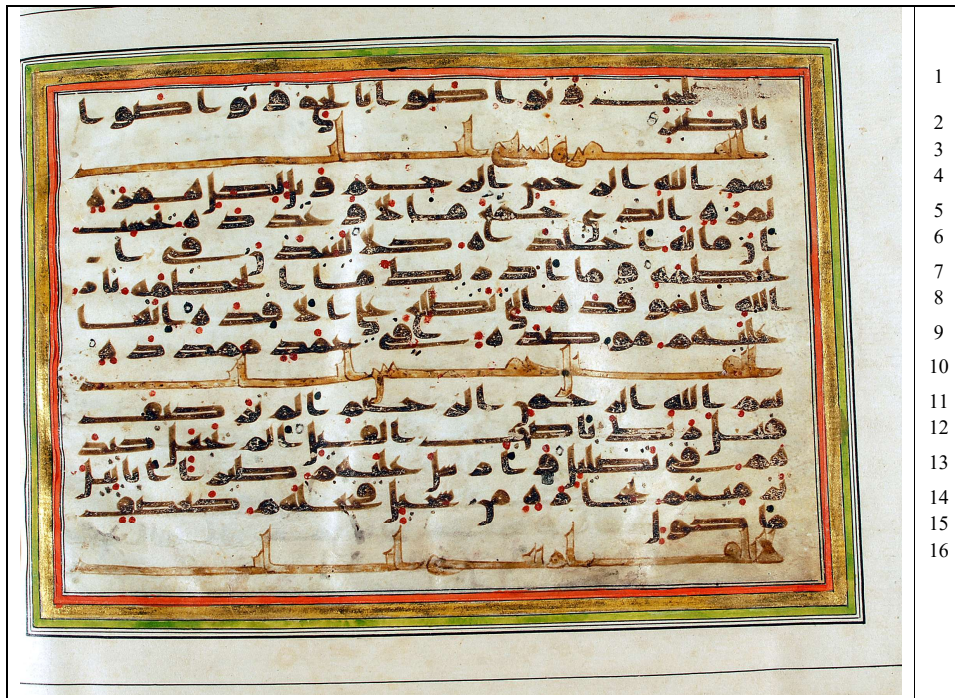 لحت وتواصوا بالحق وتواصوا 1
بالصبر 2
الهمزه تسع ايات 3
بسم الله الرحمن الرحيم ويل لكل همزة 4
لمزة الذي جمع مالا وعدده يحسب 5
ان ماله اخلده كلا لينبذن في ا 6
لحطمة وما ادريك ما الحطمة نار 7
الله الموقدة التي تطلع على الافدة انها 8
عليهم موصدة في عمد ممددة 9
الفيل خمس ايات 10
بسم الله الرحمن الرحيم الم تر كيف 11
فعل ربك باصحب الفيل الم يجعل كيد 12
هم في تضليل وارسل عليهم طيرا ابابيل 13
ترميهم بحجارة من سجيل فجعلهم كعصف 14
ماكول 15
ايات 16